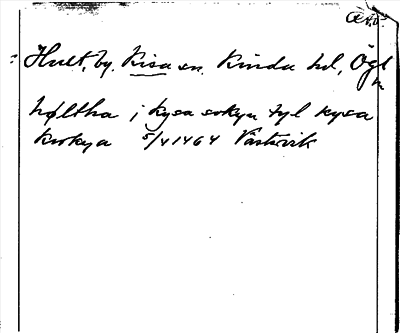 Hult, by. Kisa sn. Kinda hd, Ögl
høltha i kysa sokyn tyl kysa
kirkya 5/4 1464 Västervik